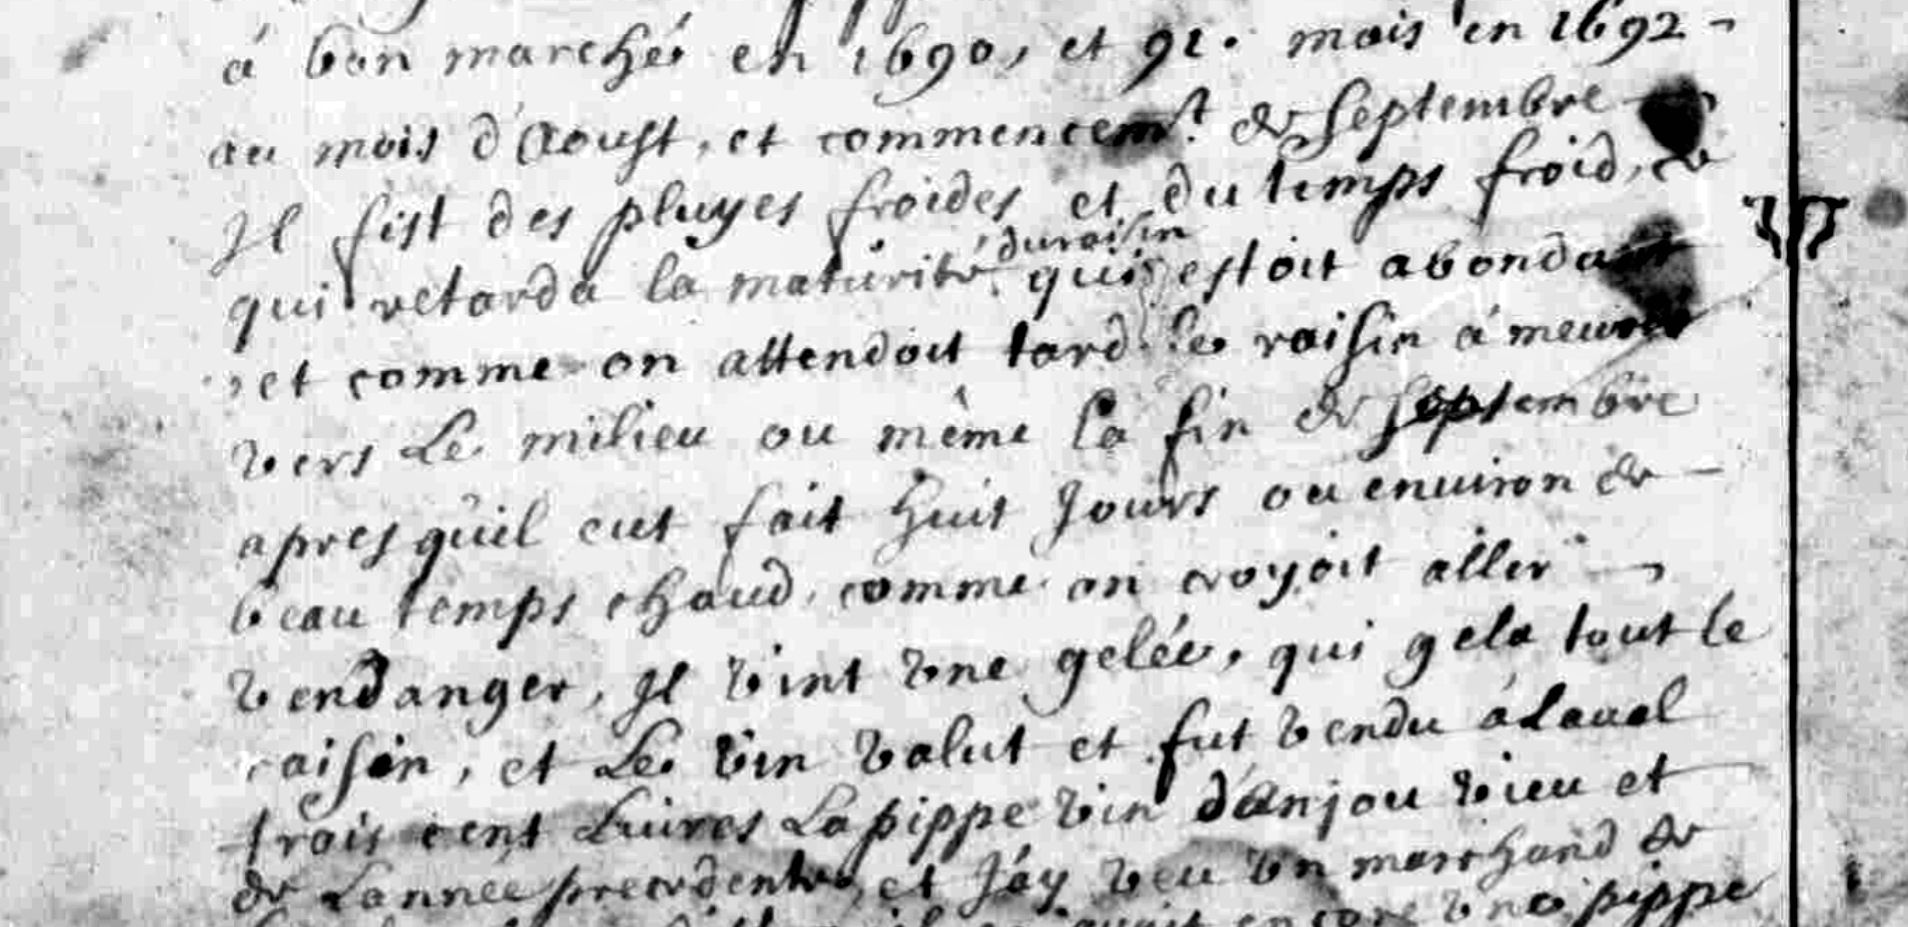 à bon marché en 1690, et 91. mais en 1692
au mois d'Aoust, et commencemt. de septembre
Il fist des pluyes froides et du temps froid, ce
qui retarda la maturité du raisin qui estoit abondant
, et comme on attendoit tard le raisin à meurir
vers Le milieu ou même la fin de septembre
apres qu'il eut fait huit Jours ou environ de
beau temps chaud, comme on croyoit aller
vendanger, Il vint vne gelée, qui gela tout le
raisin, et Le vin valut et fut vendu à Laual
trois cent Liures La pippe vin d'anjou vieu et
de Lannee precedente, et J'ay veu vn marchand de
vne pippe